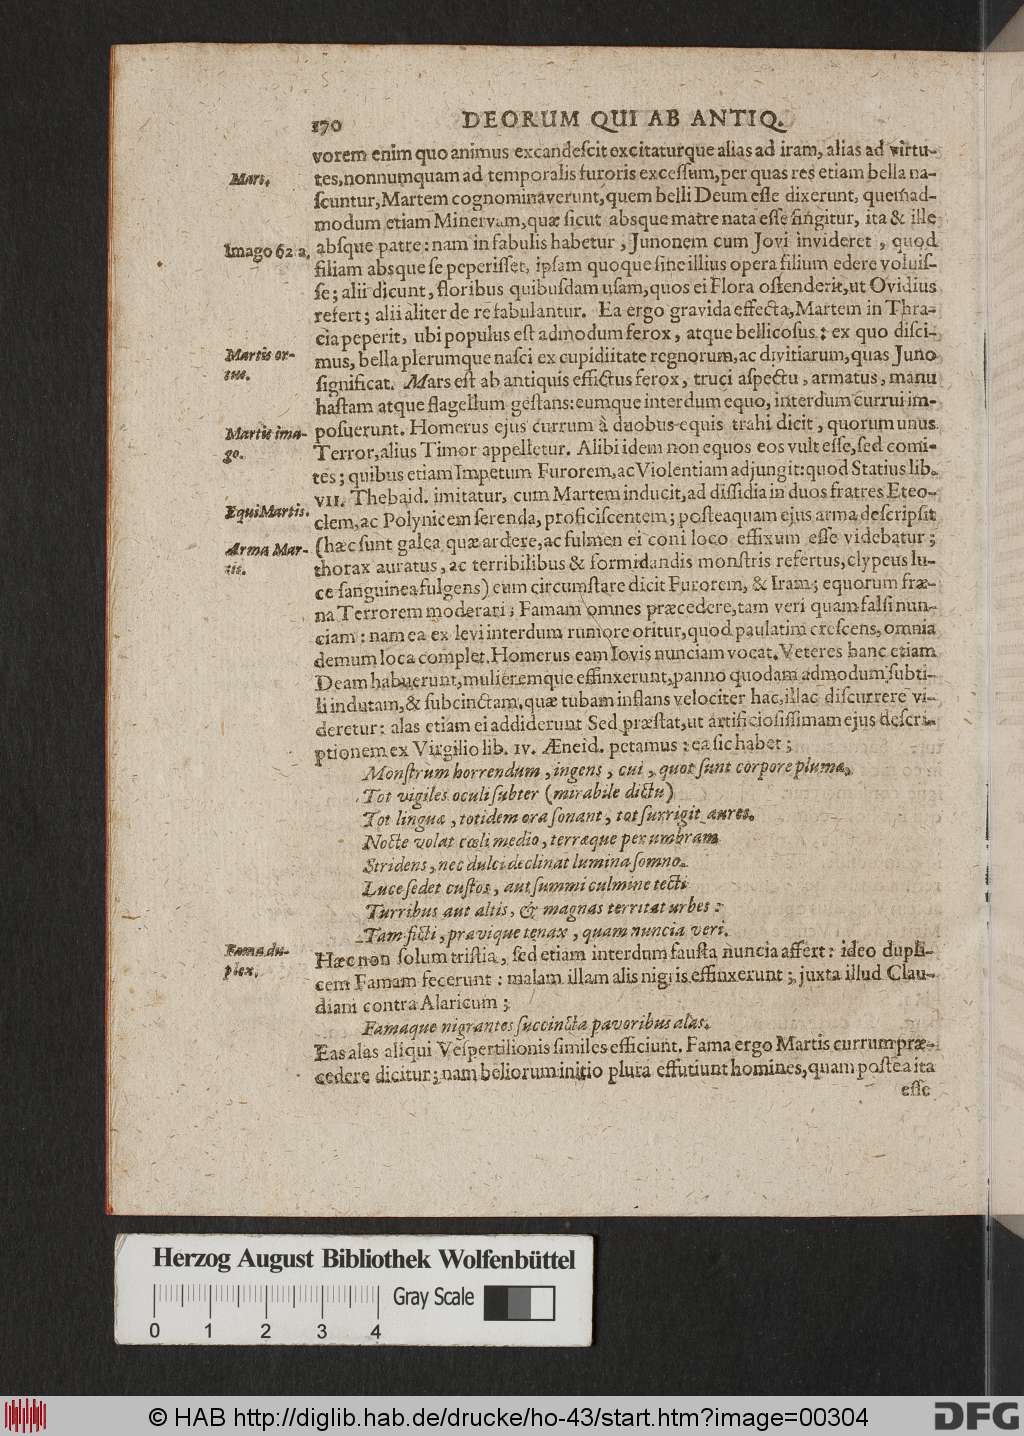 170 DEORUM QUI AB ANTIQ.
vorem enim quo animus excandeſcit excitaturque alias ad iram, alias ad virtu-
Mars.
tes, nonnumquam ad temporalis furoris exceſſum, per quas res etiam bella na-
ſcuntur, Martem cognominaverunt, quem belli Deum eſſe dixerunt, quemad-
modum etiam Minervam, quæ ſicut absque matre nata eſſe fingitur, ita & ille
Imago 62 a.
abſque patre: nam in fabulis habetur, Junonem cum Jovi invideret, quod
filiam absque ſe peperiſſet, ipſam quoque ſine illius opera filium edere voluiſ-
ſe; alii dicunt, floribus quibuſdam uſam, quos ei Flora oſtenderit, ut Ovidius
refert; alii aliter de re fabulantur. Ea ergo gravida effecta, Martem in Thra-
cia peperit, ubi populus eſt admodum ferox, atque bellicoſus: ex quo diſci-
Martis or-
tus.
mus, bella plerumque naſci ex cupidiitate regnorum, ac divitiarum, quas Juno
ſignificat. Mars eſt ab antiquis effictus ferox, truci aſpectu, armatus, manu
haſtam atque flagellum geſtans: eumque interdum equo, interdum currui im-
Martis ima-
go.
poſuerunt. Homerus ejus currum à duobus equis trahi dicit, quorum unus
Terror, alius Timor appelletur. Alibi idem non equos eos vult eſſe, ſed comi-
tes; quibus etiam Impetum Furorem, ac Violentiam adjungit: quod Statius lib.
VII. Thebaid. imitatur, cum Martem inducit, ad diſſidia in duos fratres Eteo-
Equi Martis.
clem, ac Polynicem ſerenda, proficiſcentem; poſteaquam ejus arma deſcripſit
Arma Mar-
tis.
(hæc ſunt galea quæ ardere, ac fulmen ei coni loco effixum eſſe videbatur;
thorax auratus, ac terribilibus & formidandis monſtris refertus, clypeus lu-
ce ſanguinea fulgens) eum circumſtare dicit Furorem, & Iram; equorum fræ-
na Terrorem moderari; Famam omnes præcedere, tam veri quam falſi nun-
ciam: nam ea ex levi interdum rumore oritur, quod paulatim creſcens, omnia
demum loca complet. Homerus eam Iovis nunciam vocat. Veteres hanc etiam
Deam habuerunt, mulieremque effinxerunt, panno quodam admodum ſubti-
li indutam, & ſubcinctam, quæ tubam inflans velociter hac, illac diſcurrere vi-
deretur: alas etiam ei addiderunt Sed præſtat, ut artificioſiſſimam ejus deſcri-
ptionem ex Virgilio lib. IV. Æneid. petamus: ea ſic habet;
Monſtrum horrendum, ingens, cui, quot ſunt corpore plumæ,
Tot vigiles oculi ſubter (mirabile dictu)
Tot linguæ, totidem ora ſonant, tot ſurrigit aures.
Nocte volat cœli medio, terræque per umbram
Stridens, nec dulci declinat lumina ſomno.
Luce ſedet cuſtos, aut ſummi culmine tecti
Turribus aut altis, & magnas territat urbes:
Tam ficti, pravique tenax, quam nuncia veri.
Fama du-
plex.
Hæc non ſolum triſtia, ſed etiam interdum fauſta nuncia affert: ideo dupli-
cem Famam fecerunt: malam illam alis nigris effinxerunt; juxta illud Clau-
diani contra Alaricum;
Famaque nigrantes ſuccincta pavoribus alas.
Eas alas aliqui Veſpertilionis ſimiles efficiunt. Fama ergo Martis currum præ-
cedere dicitur; nam bellorum initio plura effutiunt homines, quam poſtea ita
eſſe
Herzog August Bibliothek Wolfenbüttel
Gray Scale
0 1 2 3 4
© HAB http://diglib.hab.de/drucke/ho-43/start.htm?image=00304
DFG